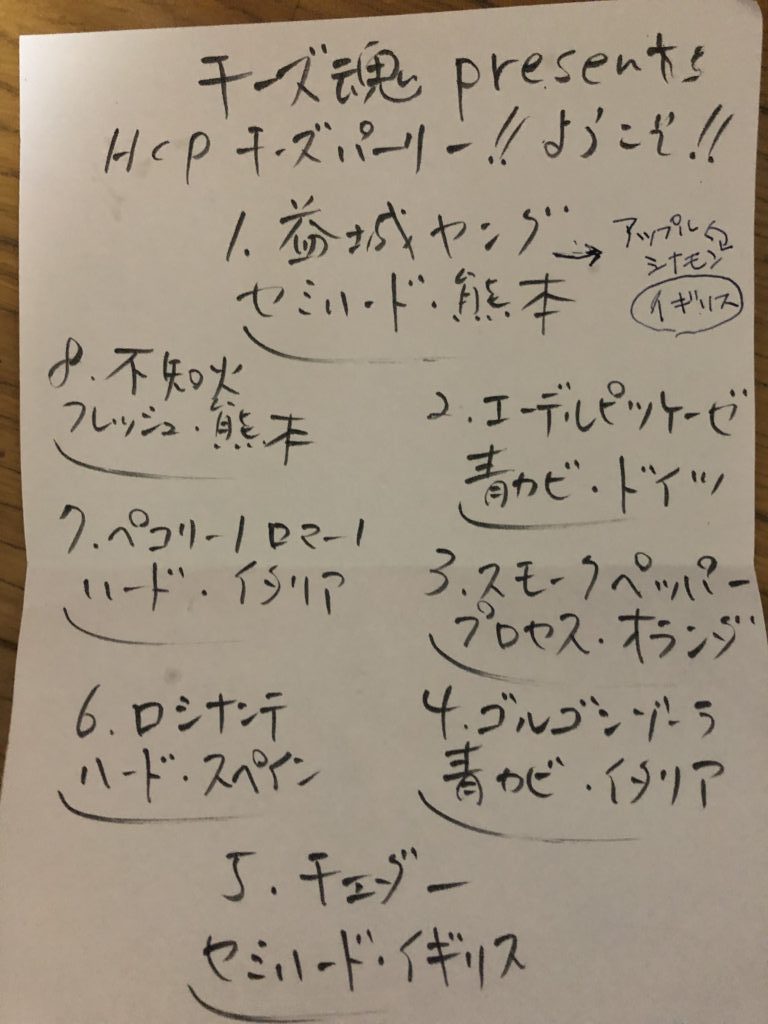 チーズ魂 presents
HCP チーズパーリー!! ようこそ!!
1. 益城ヤング →
セミハード・熊本
アップル
シナモン
イギリス
2. エーデルピッケーゼ
青カビ・ドイツ
3. スモークペッパー
プロセス・オランダ
4. ゴルゴンゾーラ
青カビ・イタリア
5. チェダー
セミハード・イギリス
6. ロシナンテ
ハード・スペイン
7. ペコリーノロマーノ
ハード・イタリア
8. 不知火
フレッシュ・熊本